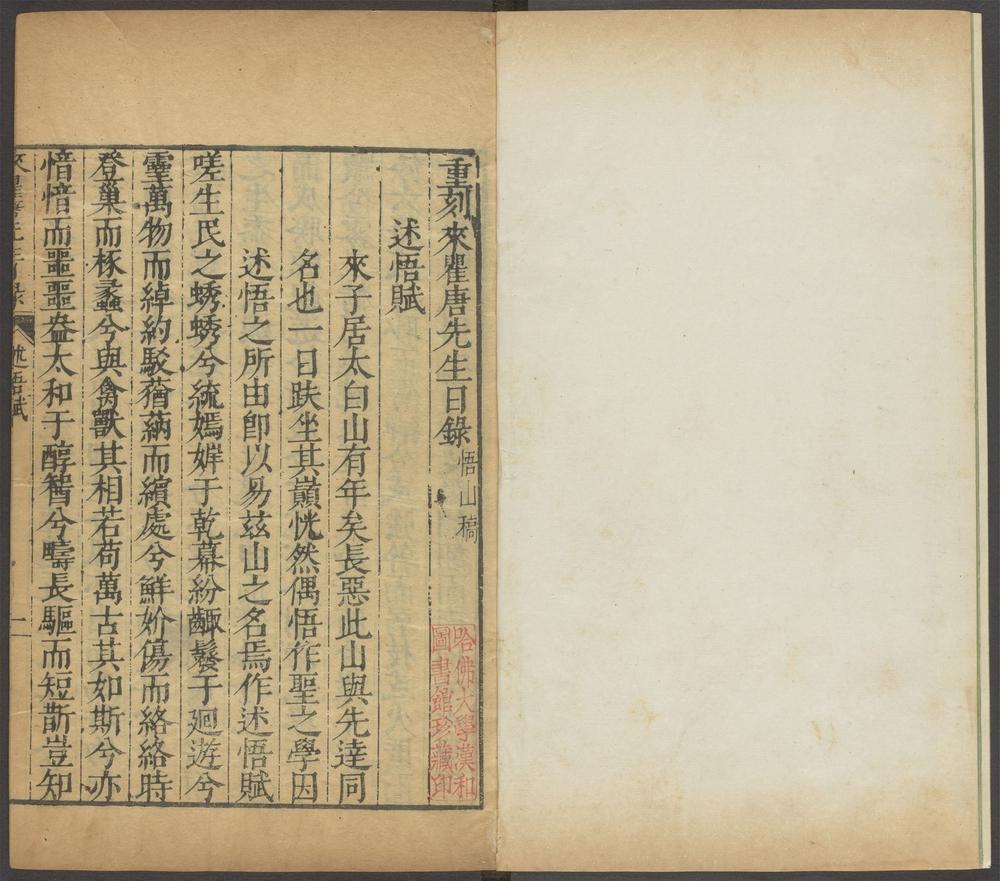 重刻來瞿唐先生日錄悟山稿
哈佛大學漢和
圖書館珍藏印
述悟賦
來子居太白山有年矣長惡此山與先達同
名也一日趺坐其巔恍然偶悟作聖之學因
述悟之所由卽以易茲山之名焉作述悟賦
嗟生民之蝣蝣兮統嫣娫于乾幕紛齱齵于廻遊兮
羣萬物而綽約駁蕕蒳而繽處兮鮮妎傷而絡絡時
登巢而椓蠡兮與禽獸其相若苟萬古其如斯兮亦
愔愔而噩噩盎太和于醇䤁兮疇長驅而短斮豈知
來瞿唐先生日錄 述悟賦 一